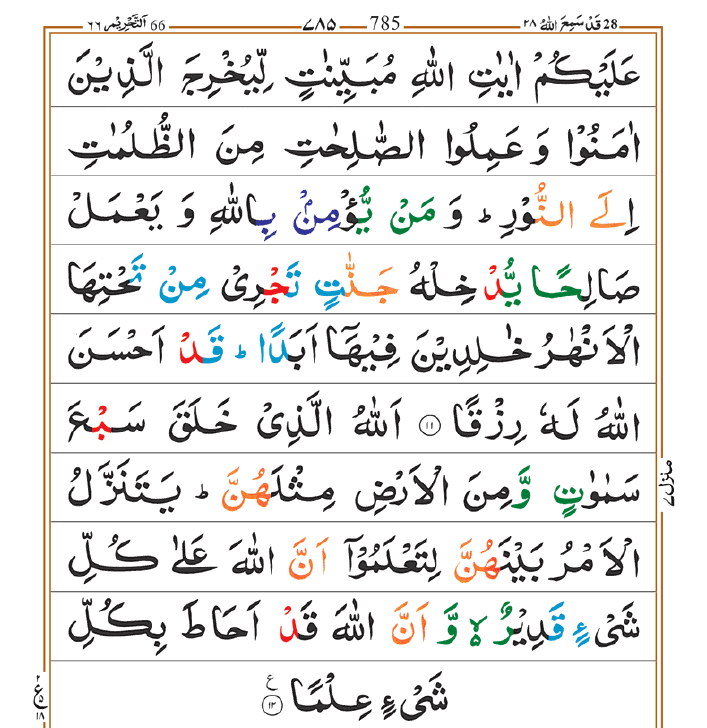 66 اَلتَّحْرِيْم ٦٦ ٧٨٥ 785 28 قَدْ سَمِعَ اللهُ ٢٨
عَلَيْكُمْ اٰيٰتِ اللهِ مُبَيِّنٰتٍ لِّيُخْرِجَ الَّذِيْنَ
اٰمَنُوْا وَ عَمِلُوا الصّٰلِحٰتِ مِنَ الظُّلُمٰتِ
اِلَى النُّوْرِ ؕ وَ مَنْ يُّؤْمِنْۢ بِاللهِ وَ يَعْمَلْ
صَالِحًا يُّدْخِلْهُ جَنّٰتٍ تَجْرِىْ مِنْ تَحْتِهَا
الْاَنْهٰرُ خٰلِدِيْنَ فِيْهَاۤ اَبَدًا ؕ قَدْ اَحْسَنَ
اللهُ لَهٗ رِزْقًا ﴿١١﴾ اَللهُ الَّذِىْ خَلَقَ سَبْعَ
سَمٰوٰتٍ وَّ مِنَ الْاَرْضِ مِثْلَهُنَّ ؕ يَتَنَزَّلُ
الْاَمْرُ بَيْنَهُنَّ لِتَعْلَمُوْۤا اَنَّ اللهَ عَلٰى كُلِّ
شَىْءٍ قَدِيْرٌ ۙ۬ وَّ اَنَّ اللهَ قَدْ اَحَاطَ بِكُلِّ
شَىْءٍ عِلْمًا ﴿١٢﴾ ع
منزل ٧
٢
ع
١٨